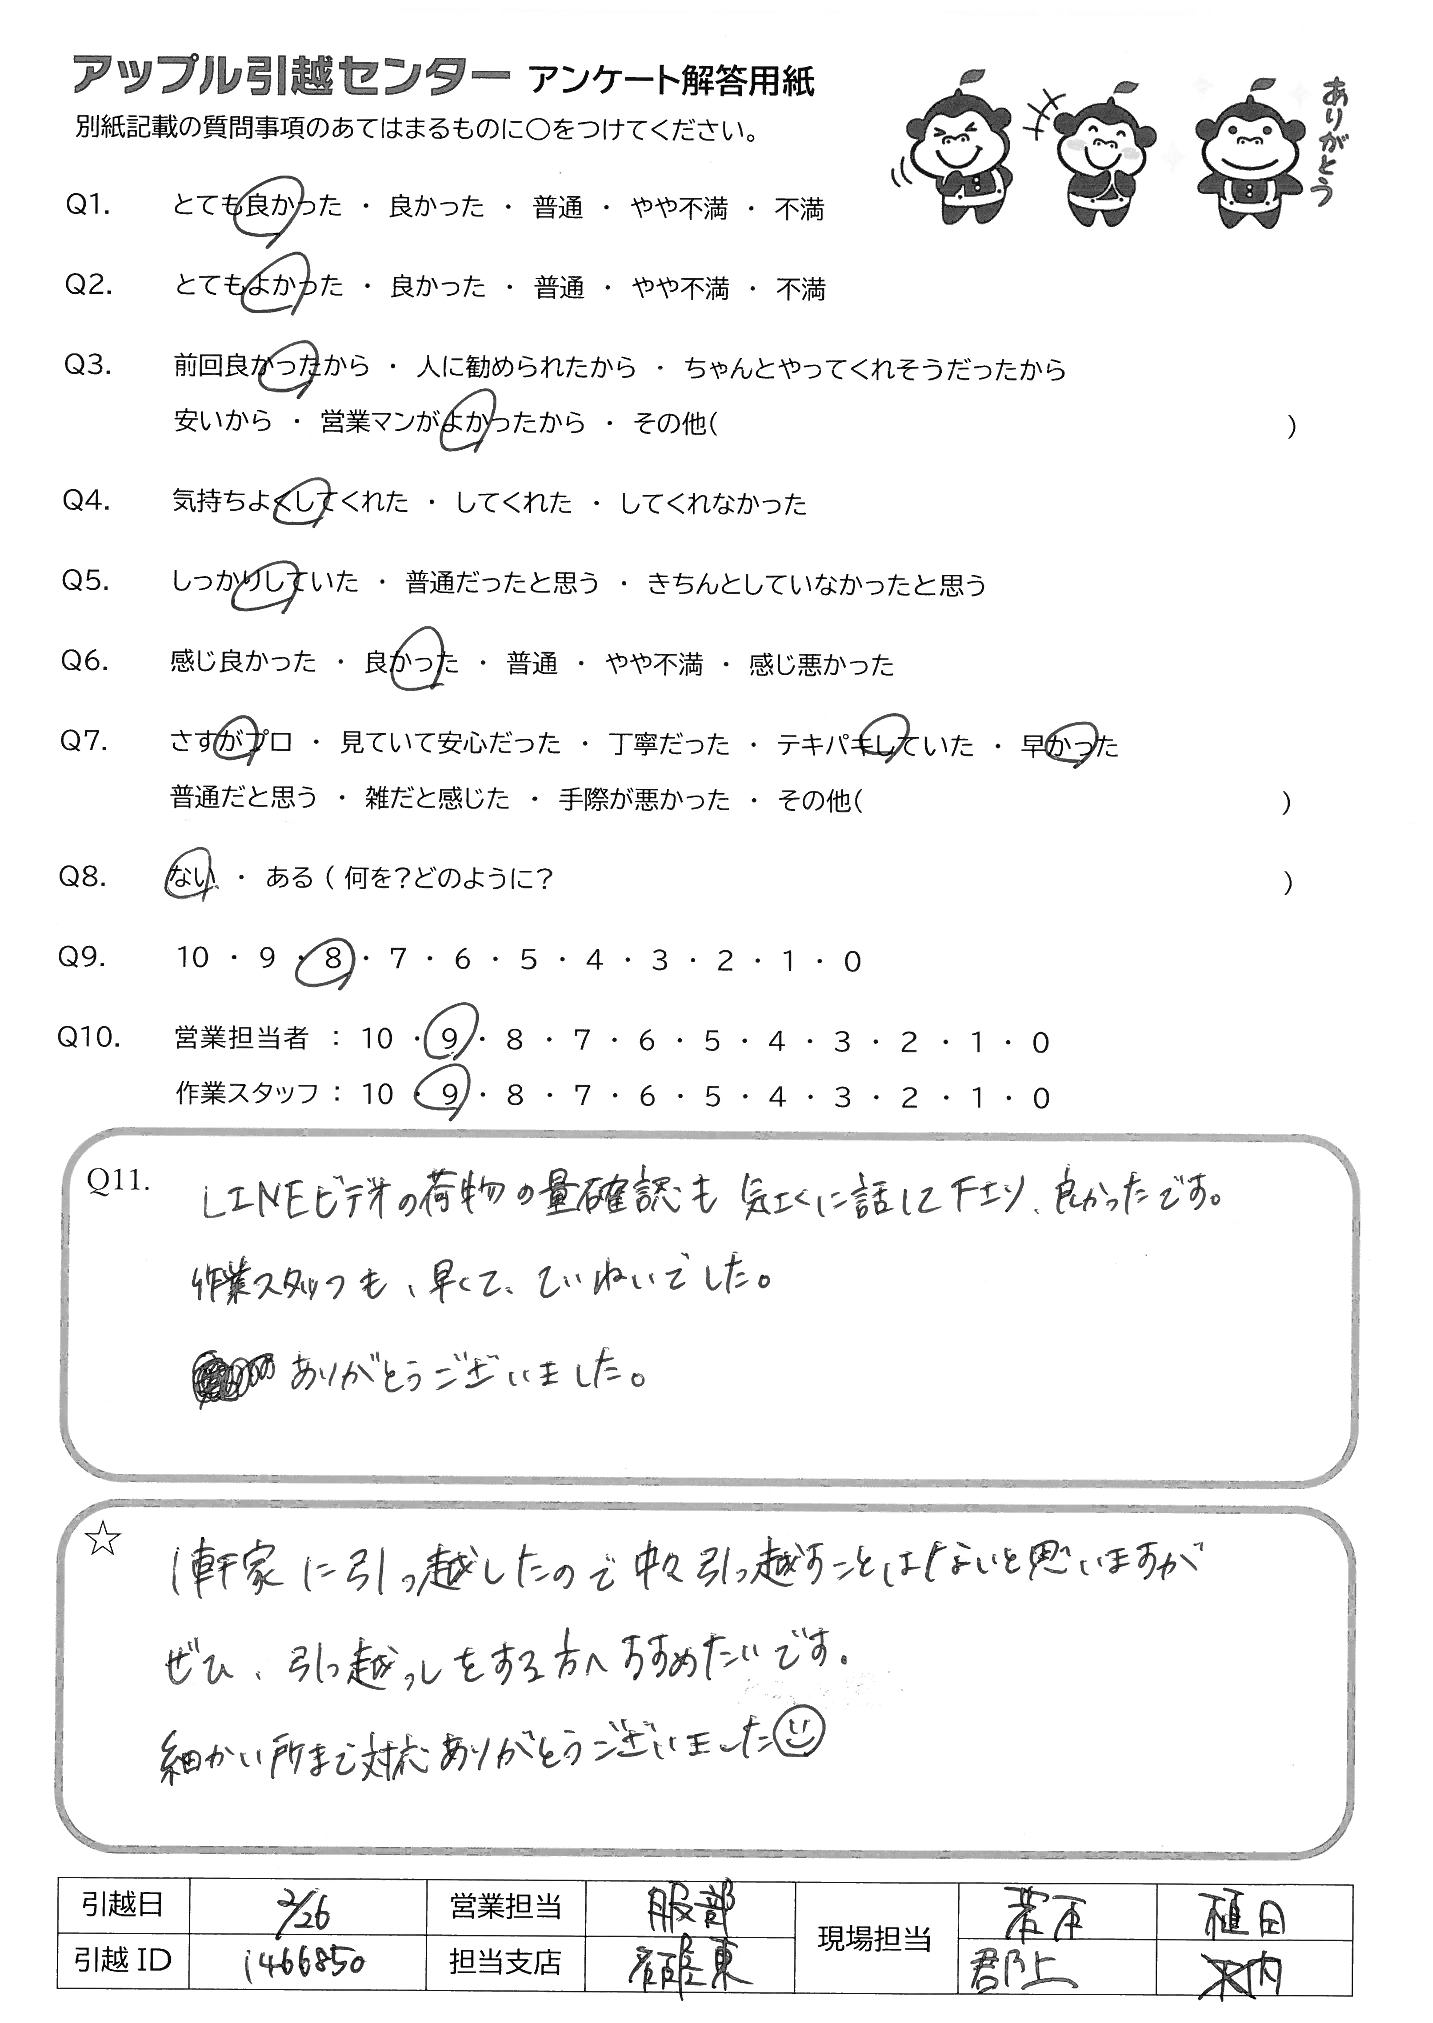 アップル引越センター アンケート解答用紙
別紙記載の質問事項のあてはまるものに○をつけてください。
ありがとう
Q1. とても良かった ・ 良かった ・ 普通 ・ やや不満 ・ 不満
Q2. とてもよかった ・ 良かった ・ 普通 ・ やや不満 ・ 不満
Q3. 前回良かったから ・ 人に勧められたから ・ ちゃんとやってくれそうだったから
安いから ・ 営業マンがよかったから ・ その他( )
Q4. 気持ちよくしてくれた ・ してくれた ・ してくれなかった
Q5. しっかりしていた ・ 普通だったと思う ・ きちんとしていなかったと思う
Q6. 感じ良かった ・ 良かった ・ 普通 ・ やや不満 ・ 感じ悪かった
Q7. さすがプロ ・ 見ていて安心だった ・ 丁寧だった ・ テキパキしていた ・ 早かった
普通だと思う ・ 雑だと感じた ・ 手際が悪かった ・ その他( )
Q8. ない ・ ある ( 何を?どのように? )
Q9. 10 ・ 9 ・ 8 ・ 7 ・ 6 ・ 5 ・ 4 ・ 3 ・ 2 ・ 1 ・ 0
Q10. 営業担当者 : 10 ・ 9 ・ 8 ・ 7 ・ 6 ・ 5 ・ 4 ・ 3 ・ 2 ・ 1 ・ 0
作業スタッフ : 10 ・ 9 ・ 8 ・ 7 ・ 6 ・ 5 ・ 4 ・ 3 ・ 2 ・ 1 ・ 0
Q11. LINEビデオの荷物の量確認も 気さくに話して下さり、良かったです。
作業スタッフも、早くて、ていねいでした。
ありがとうございました。
☆ 1軒家に引っ越したので中々引っ越すことはないと思いますが
ぜひ、引っ越っしをする方へすすめたいです。
細かい所まで対応ありがとうございました
引越日 2/26 営業担当 服部 現場担当 植田
引越ID i466850 担当支店 東 郡上 木内